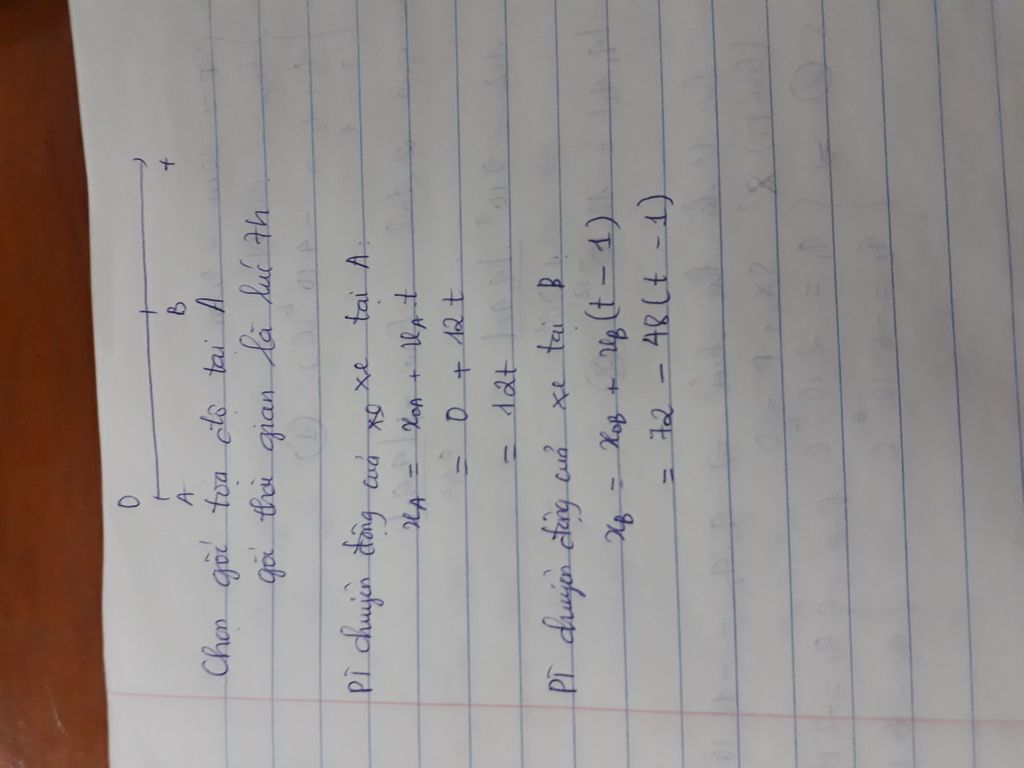 O
A B +
Chọn gốc toạ độ tại A
gốc thời gian là lúc 7h
PT chuyển động của xe tại A:
x_A = x_0A + v_A t
= 0 + 12t
= 12t
PT chuyển động của xe tại B:
x_B = x_0B + v_B (t - 1)
= 72 - 48 (t - 1)